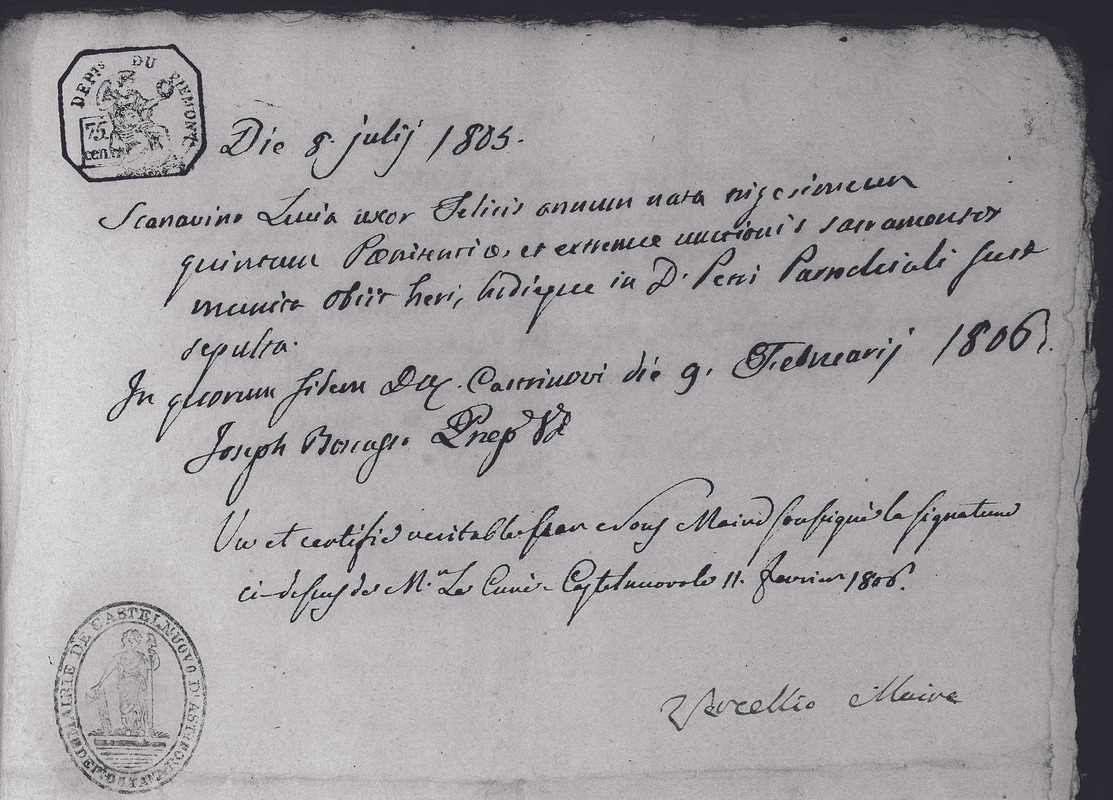 DEPts DU PIEMONT
75
cent
Die 8. julij 1805.
Scanavino Lucia uxor Felicis annum nata trigesimum
quintum Pœnitentiæ, et extreme unctionis sacramentis
munita obiit heri, hodieque in D. Petri Parochiali fuit
sepulta.
In quorum fidem Dat. Castrinovi die 9. Februarij 1806.
Joseph Præp.
Vu et certifié veritable par Nous Maire soussigné la signature
ci-dessus de M.r Le Curé. Castelnuovo le 11. fevrier 1806.
Vercellio Maire
MAIRIE DE CASTELNUOVO D'ASTI